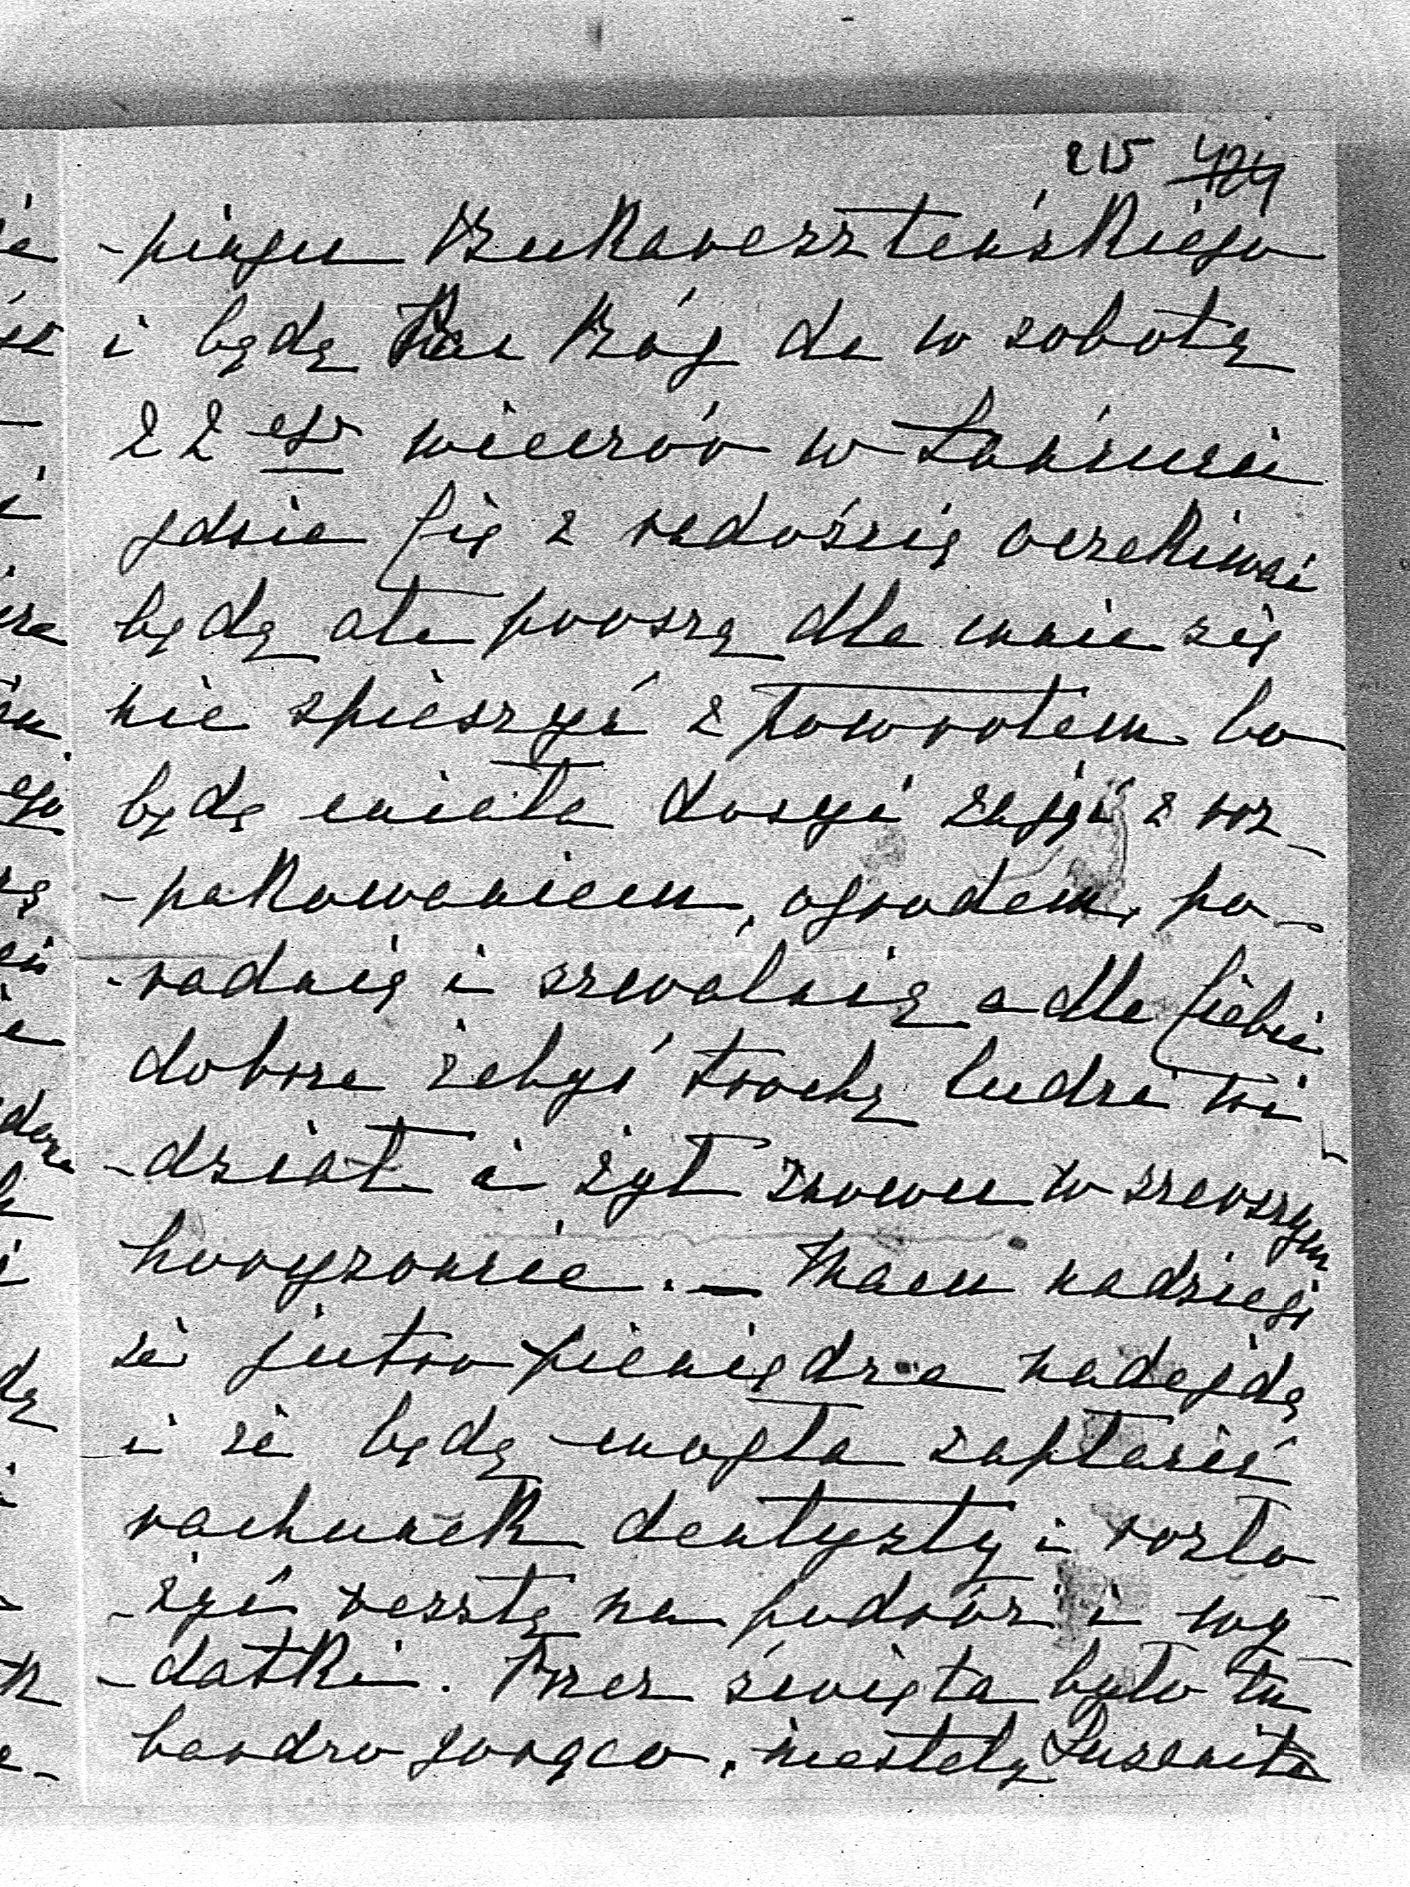 215 424
-pingu Bukaresztenskiego
i będę Bóg da w sobotę
22ego wieczór w Łańcucie
gdzie Cię z radością oczekiwać
będę ale proszę dla mnie się
nie spieszyć z powrotem bo
będę miała dosyć zajęć z roz-
-pakowaniem, ogrodem, po-
-radnią i szwalnią a dla Ciebie
dobrze żebyś trochę ludzi wi-
-dział i żył znowu w szerszym
horyzoncie. — Mam nadzieję
że jutro pieniądze nadejdą
i że będę mogła zapłacić
rachunek dentysty i rozło-
-żyć resztę na podróż i wy-
-datki. Przez święta było tu
bardzo gorąco, niestety